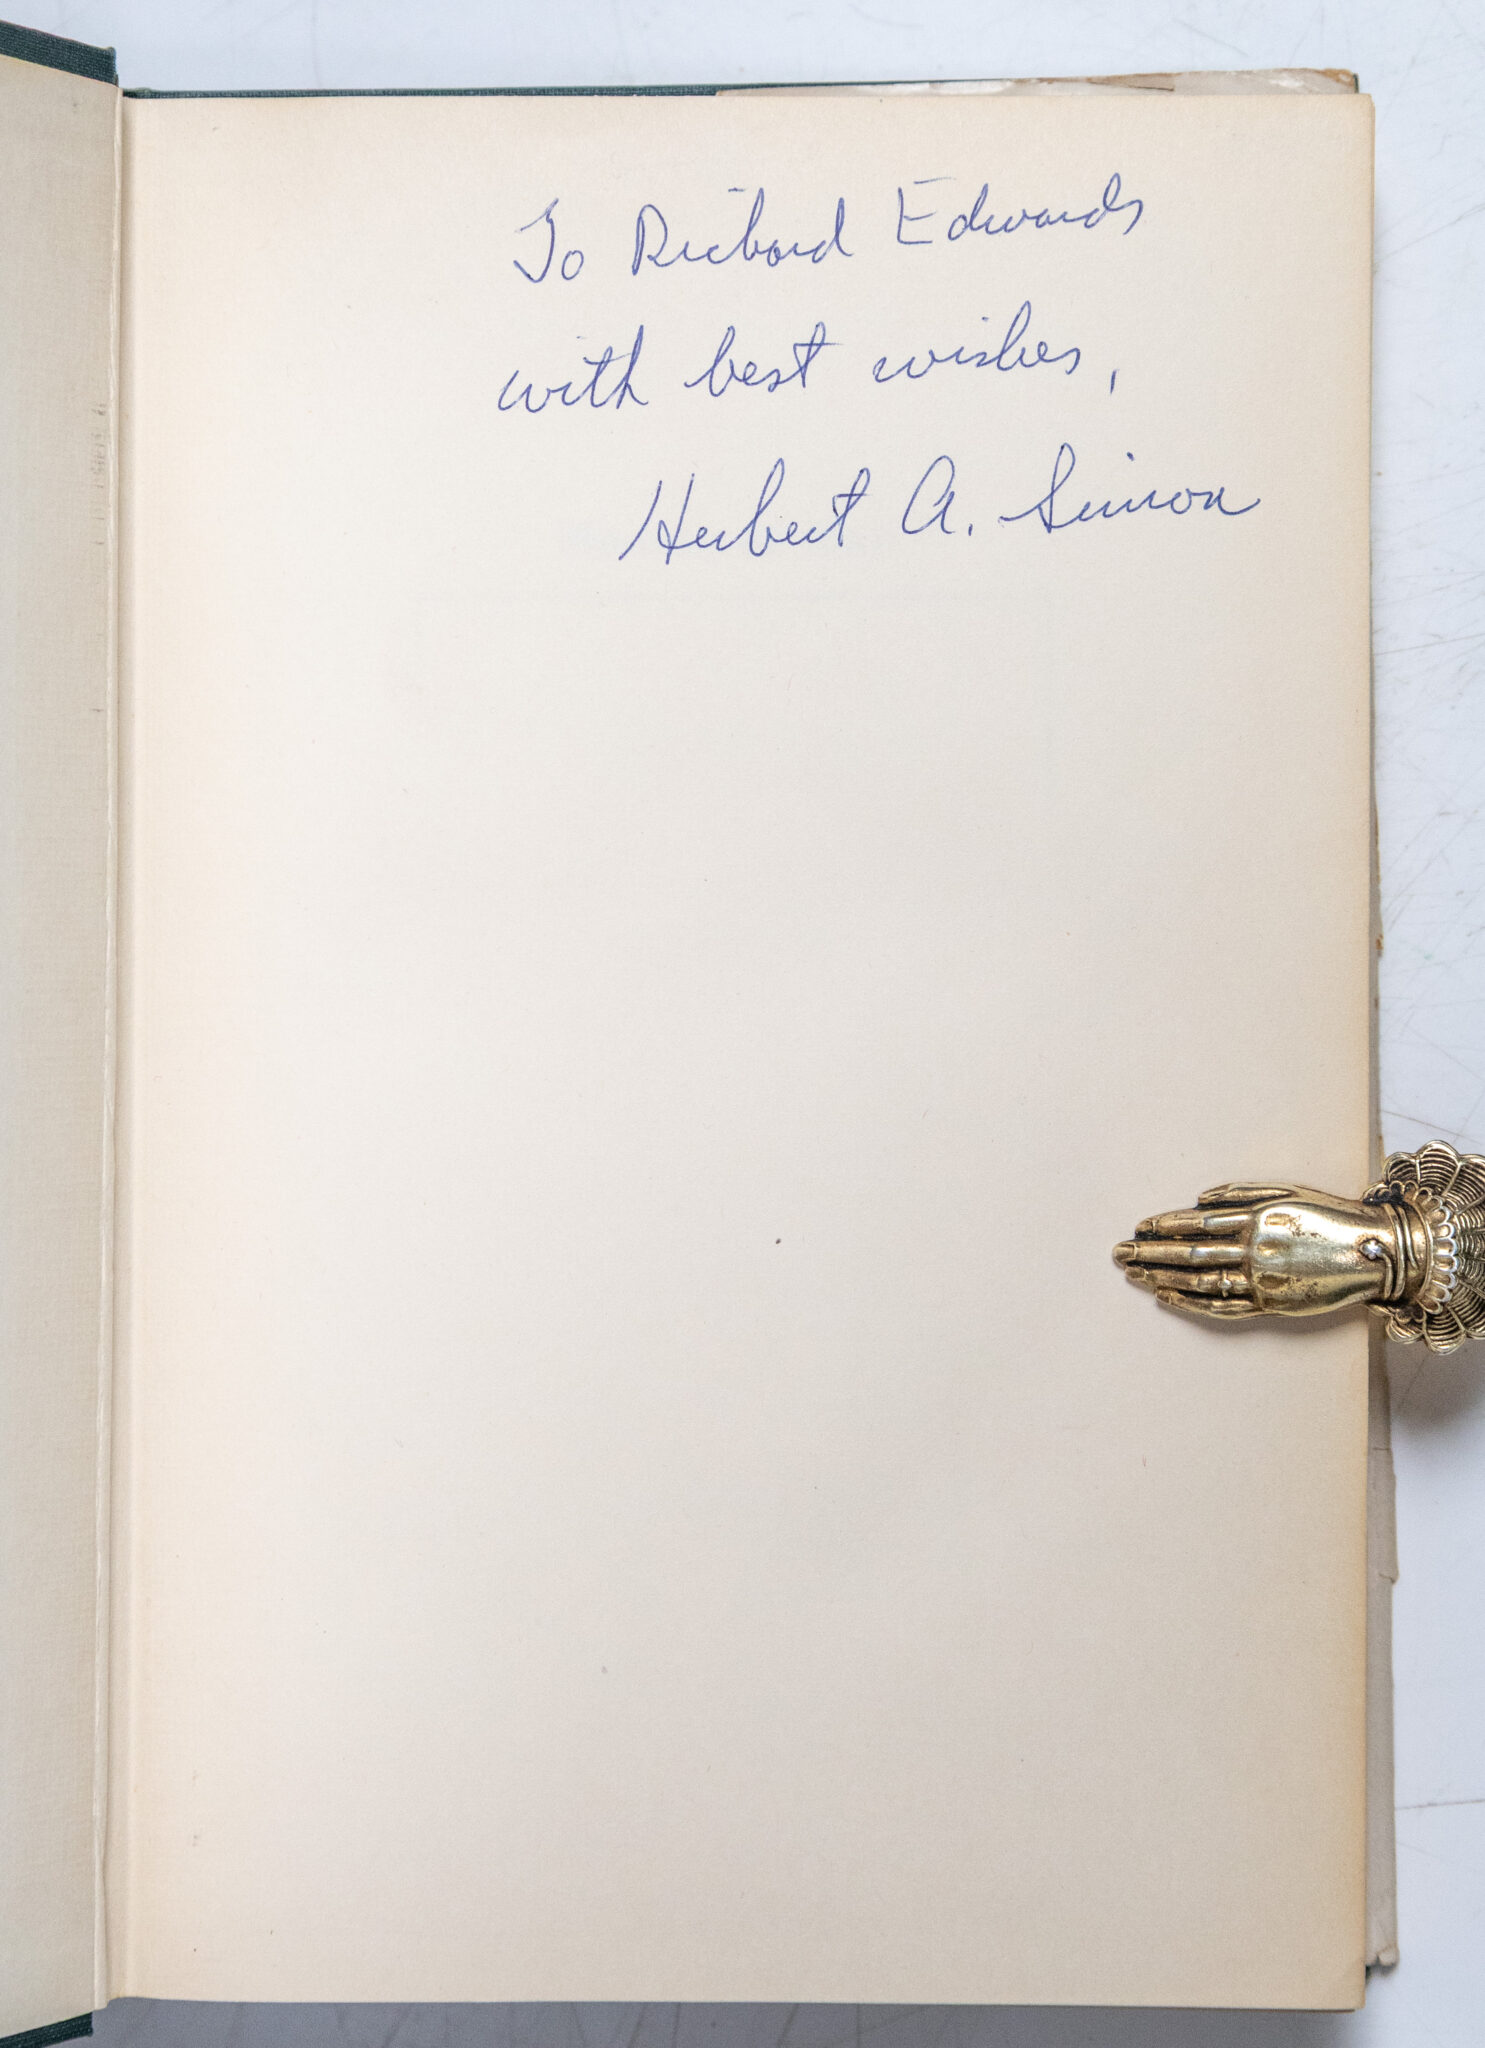 To Richard Edwards
with best wishes,
Herbert A. Simon